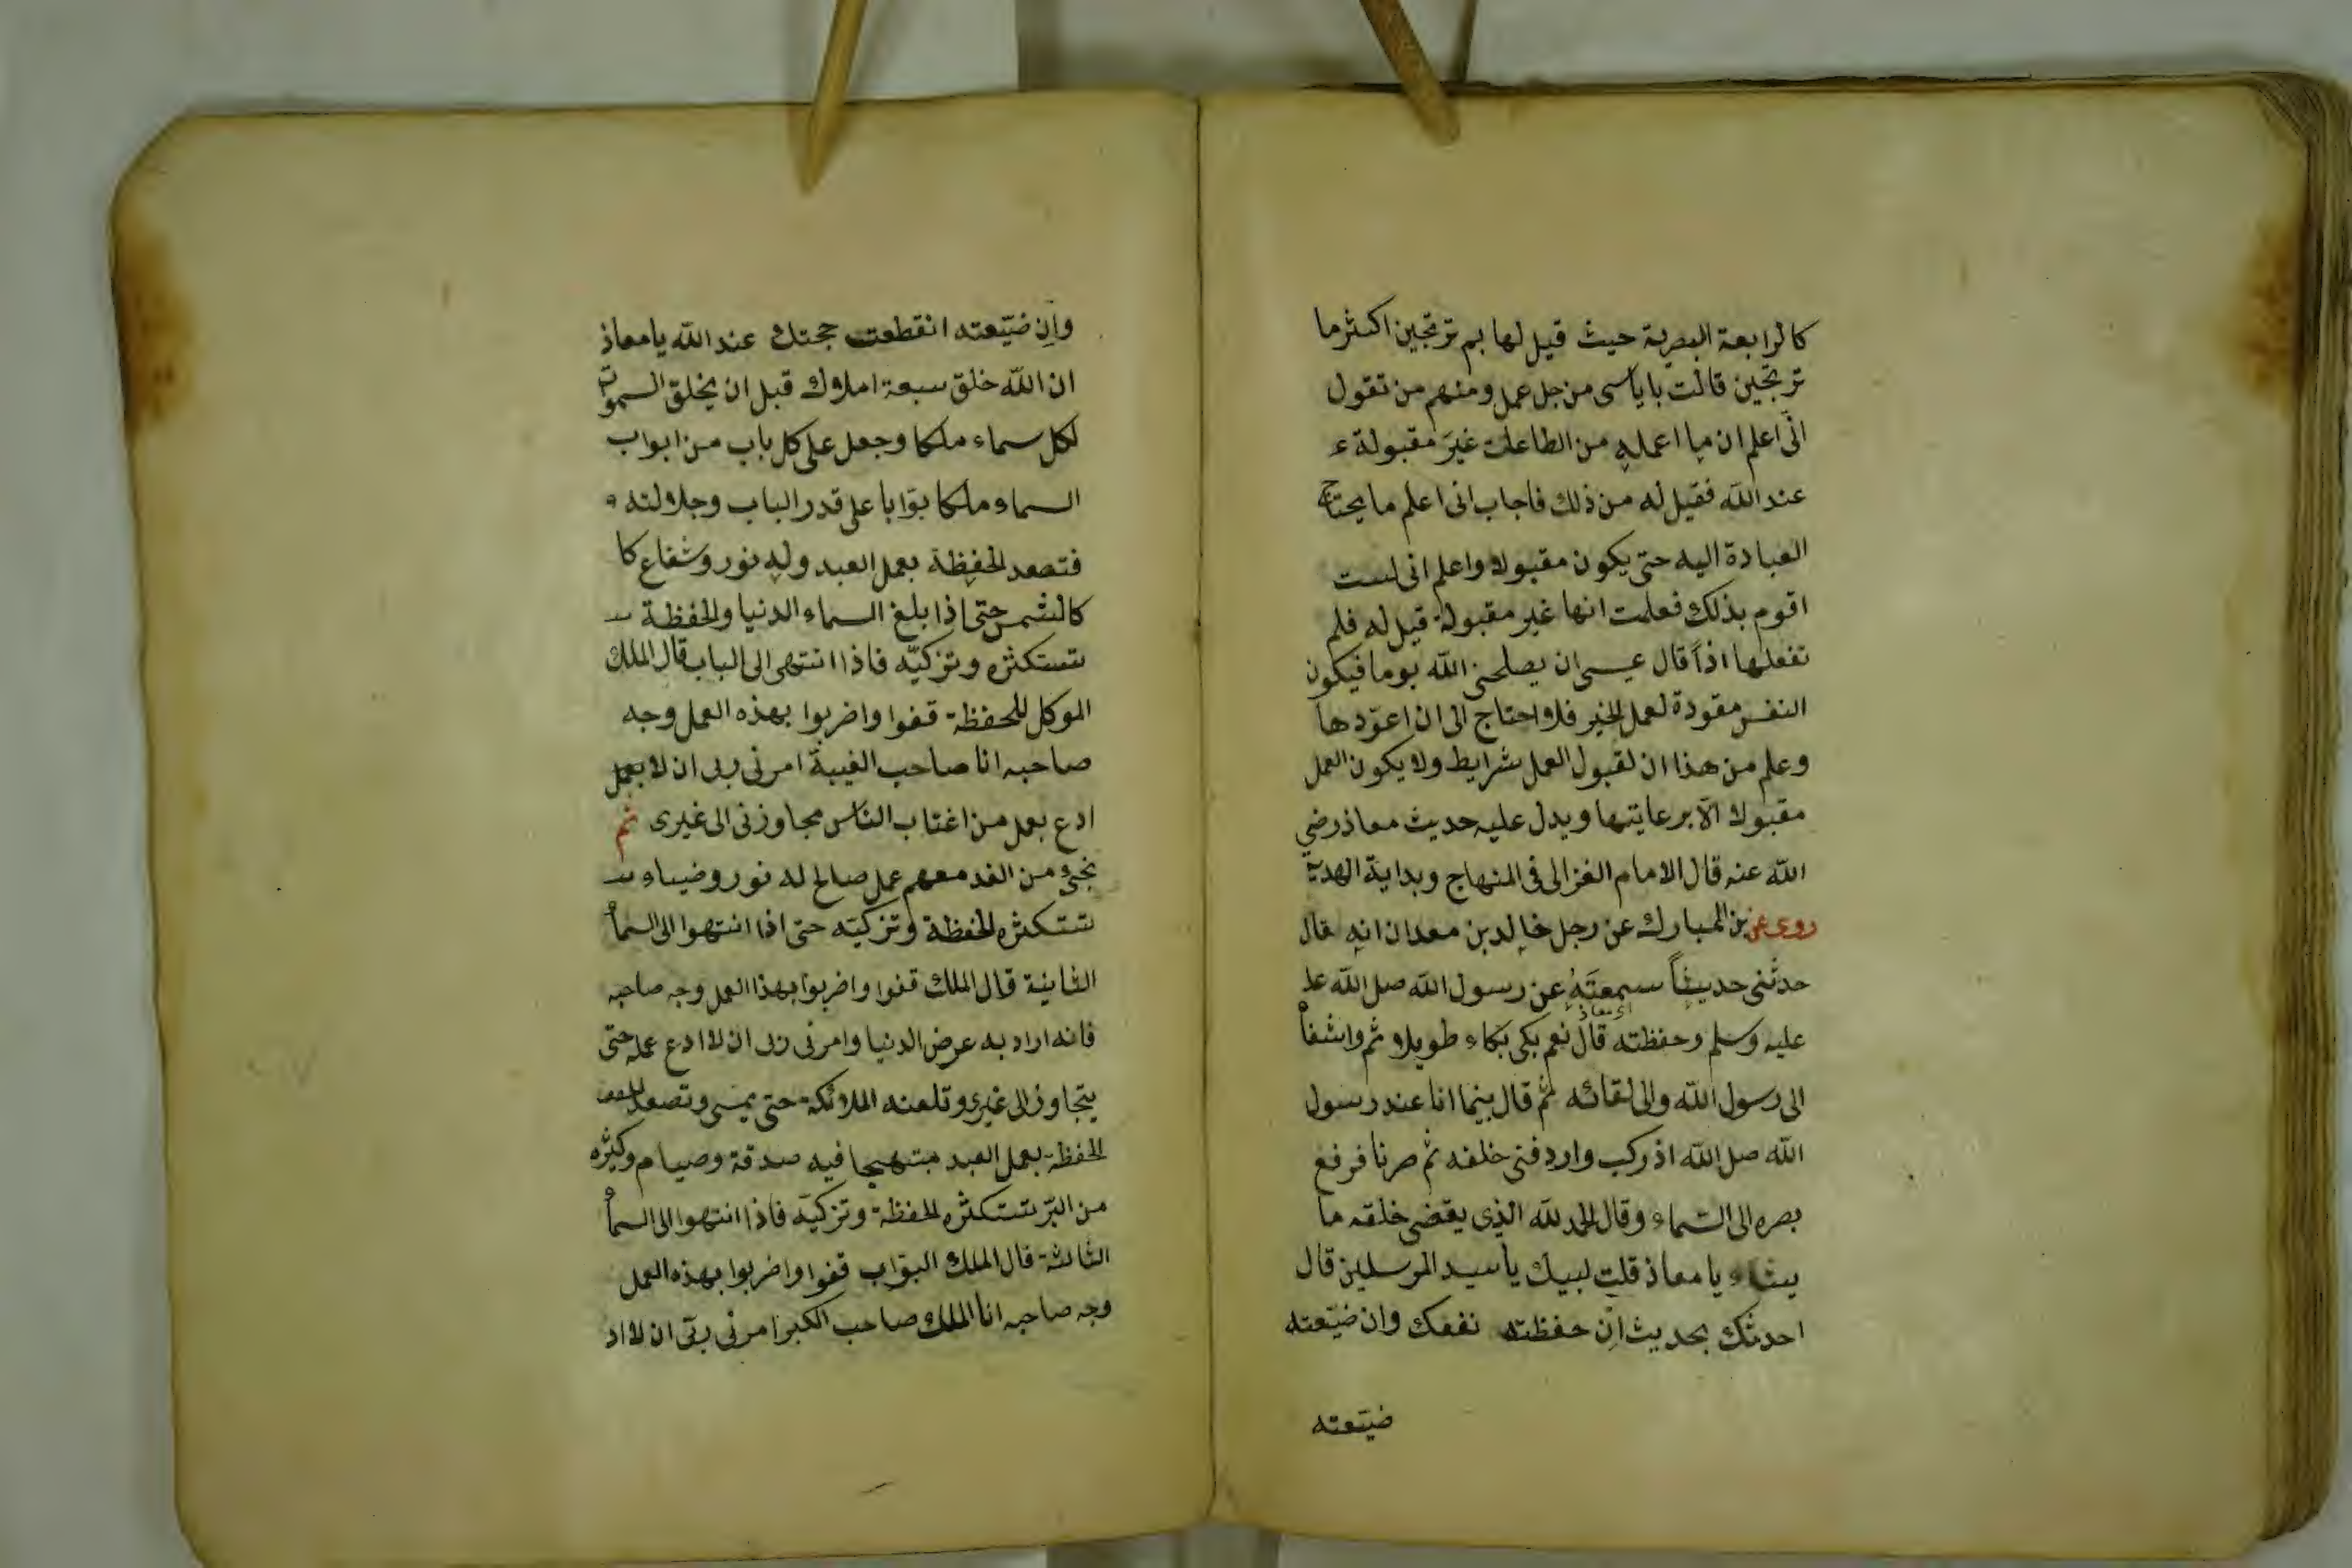 كالرابعة البصرية حيث قيل لها بم ترتجين اكثرما
ترتجين قالت بايأسى من جل عمل ومنهم من تقول
انّى اعلم ان ما اعمله من الطاعات غيرَ مقبولة ء
عند الله فقيل له من ذلك فاجاب انى اعلم ما يحتاج
العبادة اليه حتى يكون مقبولا واعلم انى لست
اقوم بذلك فعلمت انها غير مقبولة قيل له فلم
تفعلها اذاً قال عسى ان يصلحنى الله يوما فيكون
النفس مقودة لعمل الخير فلا احتاج الى ان اعوّدها
وعلم من هذا ان لقبول العمل شرايط ولا يكون العمل
مقبولا الّا برعايتها ويدل عليه حديث معاذ رضي
الله عنه قال الامام الغزالى فى المنهاج وبداية الهدية
روى عن بن المبارك عن رجل خالد بن معدان انه قال
حدثنى حديثاً سمعتَهُ عن رسول الله صل الله علـ
اى معاذ
عليه وسلم وحفظته قال نعم بكى بكاء طويلا ثم واشفا
الى رسول الله والى لقائه ثم قال بينما انا عند رسول
الله صل الله اذ ركب واردفنى خلفه ثم صرنا فرفع
بصره الى السّماء وقال الحمد لله الذى يقضى خلقه ما
يشاء يا معاذ قلت لبيك يا سيد المرسلين قال
احدثك بحديث اِن حفظته نفعك وان ضيّعته
ضيّعته
واِن ضيّعته انقطعت حجتك عند الله يا معاذ
ان الله خلق سبعة املاك قبل ان يخلق السموات
لكل سماء ملكا وجعل على كل باب من ابواب
السماء ملكا بوّابا على قدر الباب وجلالته
فتصعد الحفظة بعمل العبد وله نور وشعاع كا
كالشمس حتى اذا بلغ السماء الدنيا والحفظة
تستكثره وتزكيّه فاذا انتهى الى الباب قال الملك
الموكل للحفظة قفوا واضربوا بهذه العمل وجه
صاحبه انا صاحب الغيبة امرنى ربى ان لا بعمل
ادع بعمل من اغتاب الناس مجاوزنى الى غيرى ثم
تجئ من الغد معهم عمل صالح له نور وضياء
تستكثره الحفظة وتزكيّه حتى اذا انتهوا الى السمأ
الثانية قال الملك قفوا واضربوا بهذا العمل وجه صاحبه
فانه اراد به عرض الدنيا وامرنى ربى ان لا ادع عمله حتى
يتجاوز الى غيرى وتلعنه الملائكة حتى يمسى وتصعد
الحفظة بعمل العبد مبتهجا فيه صدقة وصيام وكثره
من البرّ تستكثره الحفظة وتزكيّه فاذا انتهوا الى السمأ
الثالثة قال الملك البوّاب قفوا واضربوا بهذه العمل
وجه صاحبه انا الملك صاحب الكبر امرنى ربّى ان لا اد